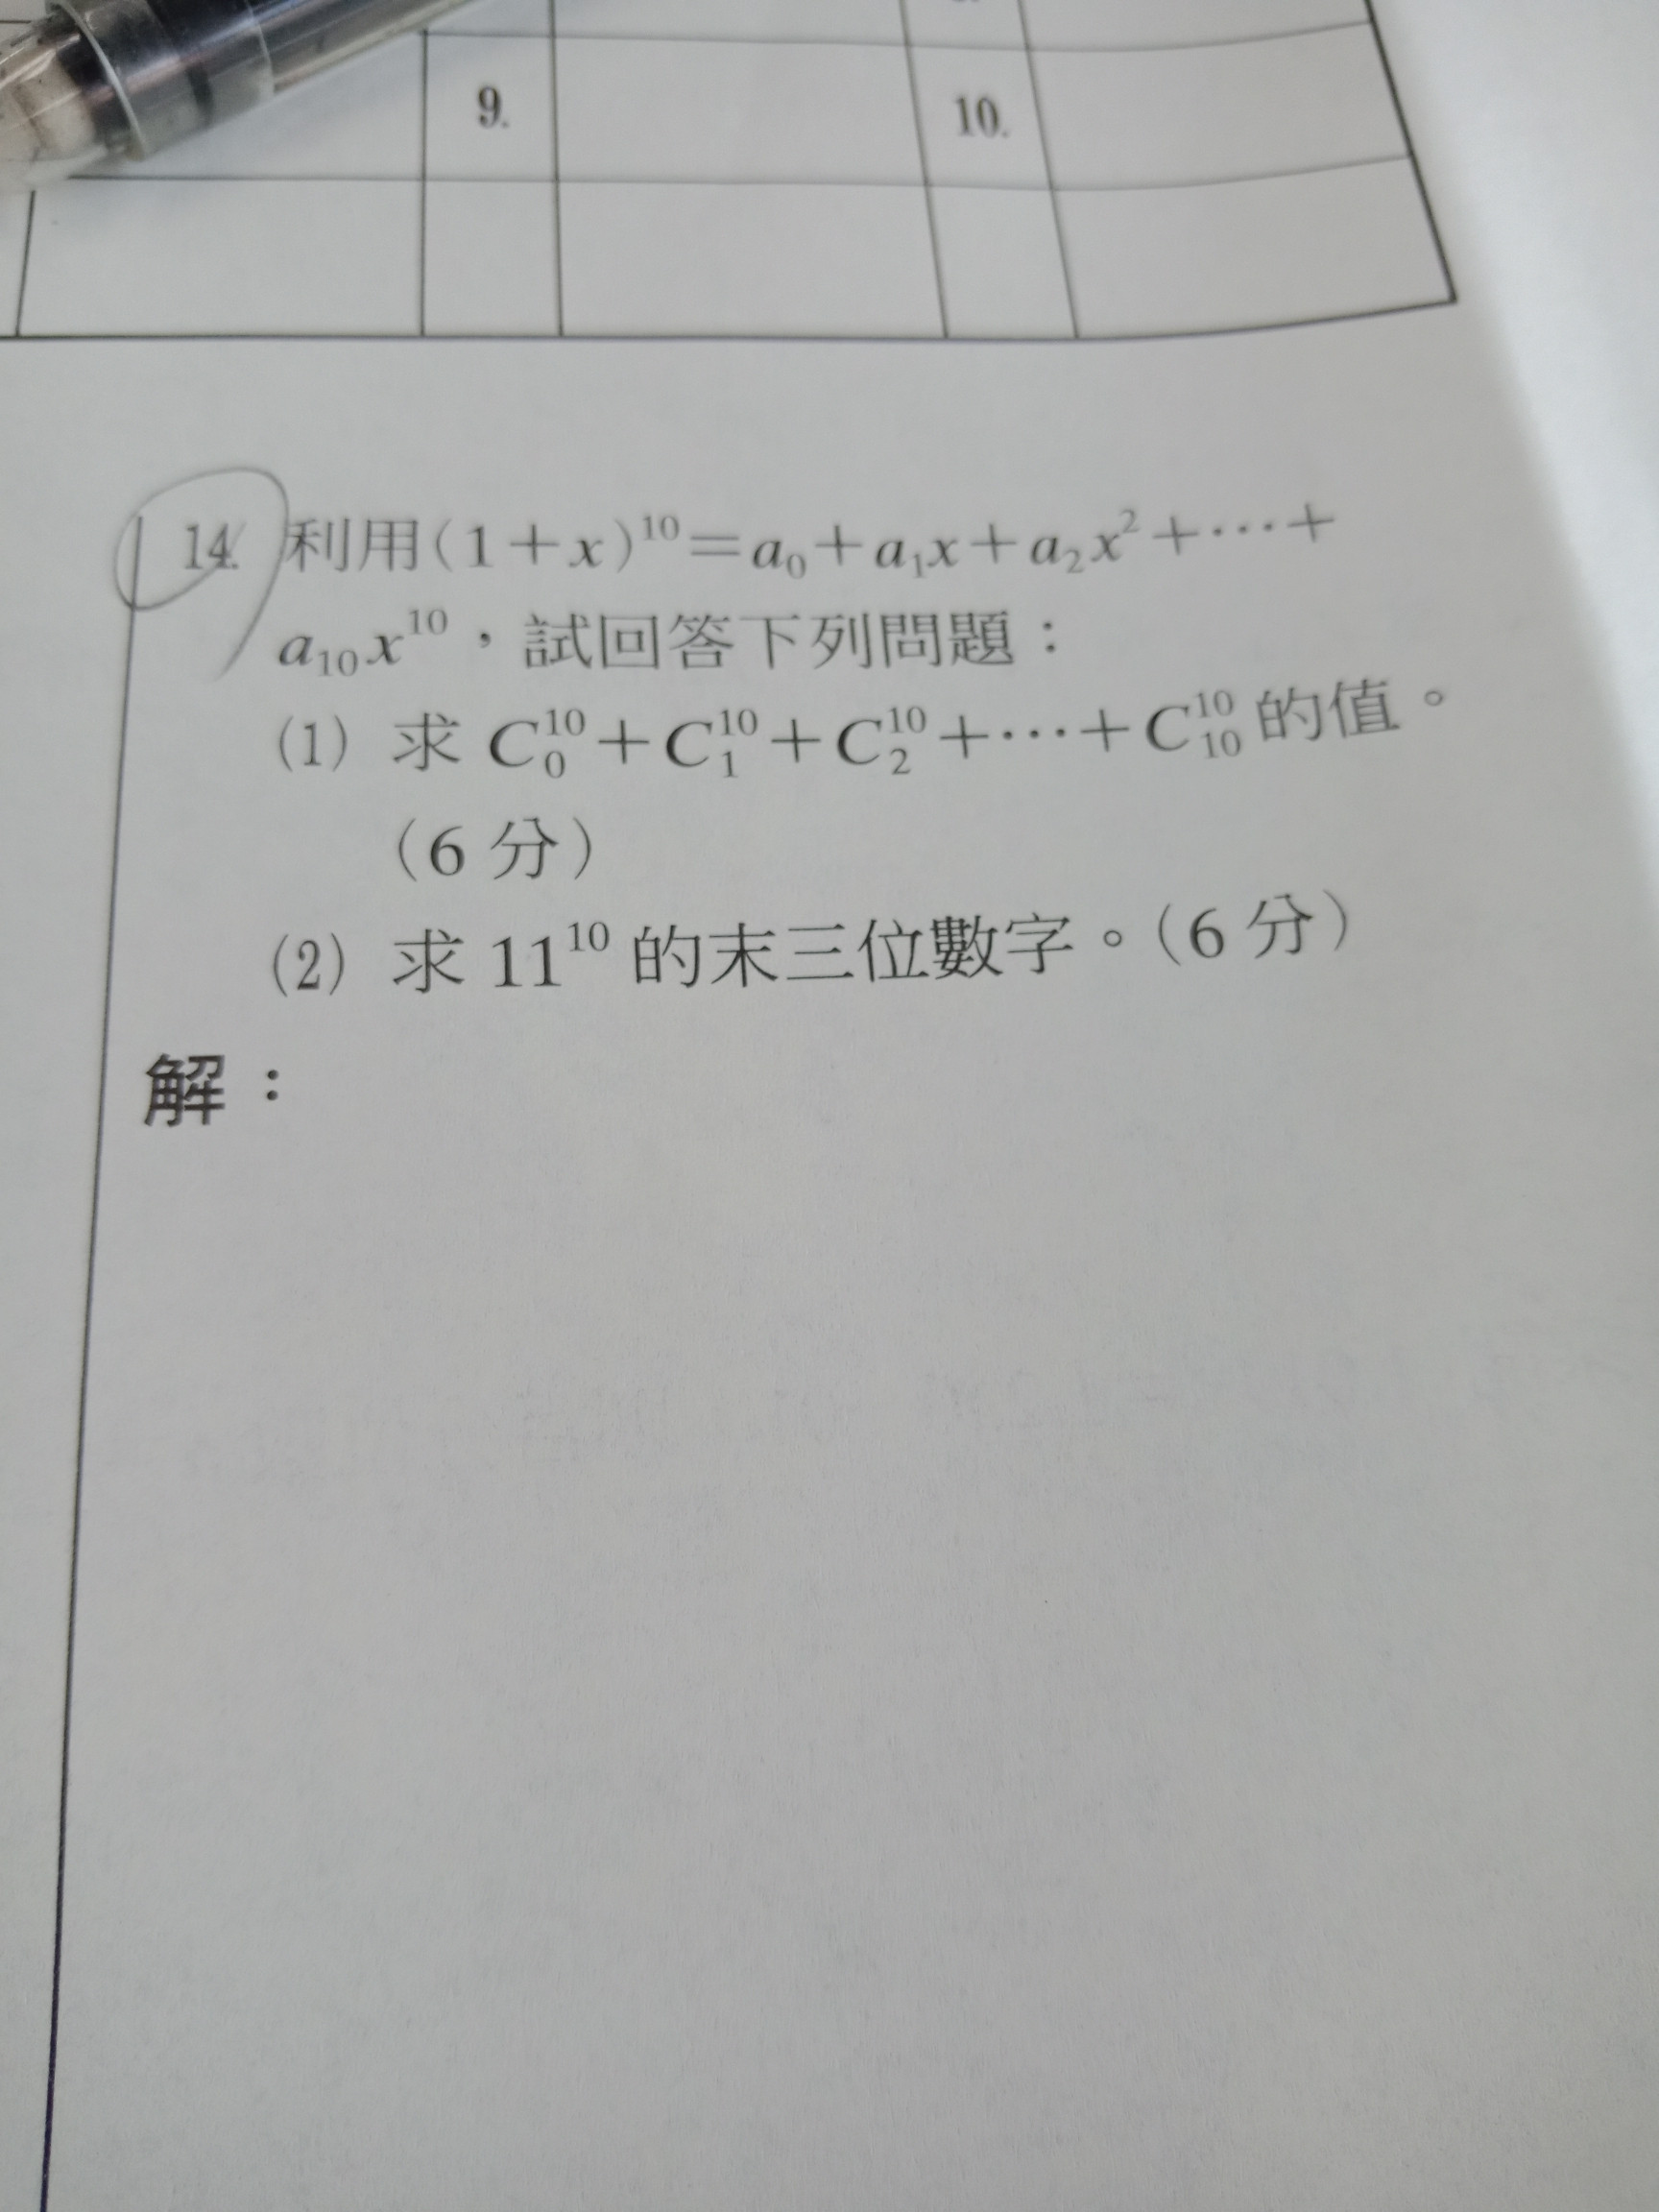 9. 10.
14. 利用(1+x)^10=a_0+a_1x+a_2x^2+⋯+
a_10x^10，試回答下列問題：
(1) 求 C^10_0+C^10_1+C^10_2+⋯+C^10_10 的值。
(6 分)
(2) 求 11^10 的末三位數字。(6 分)
解：